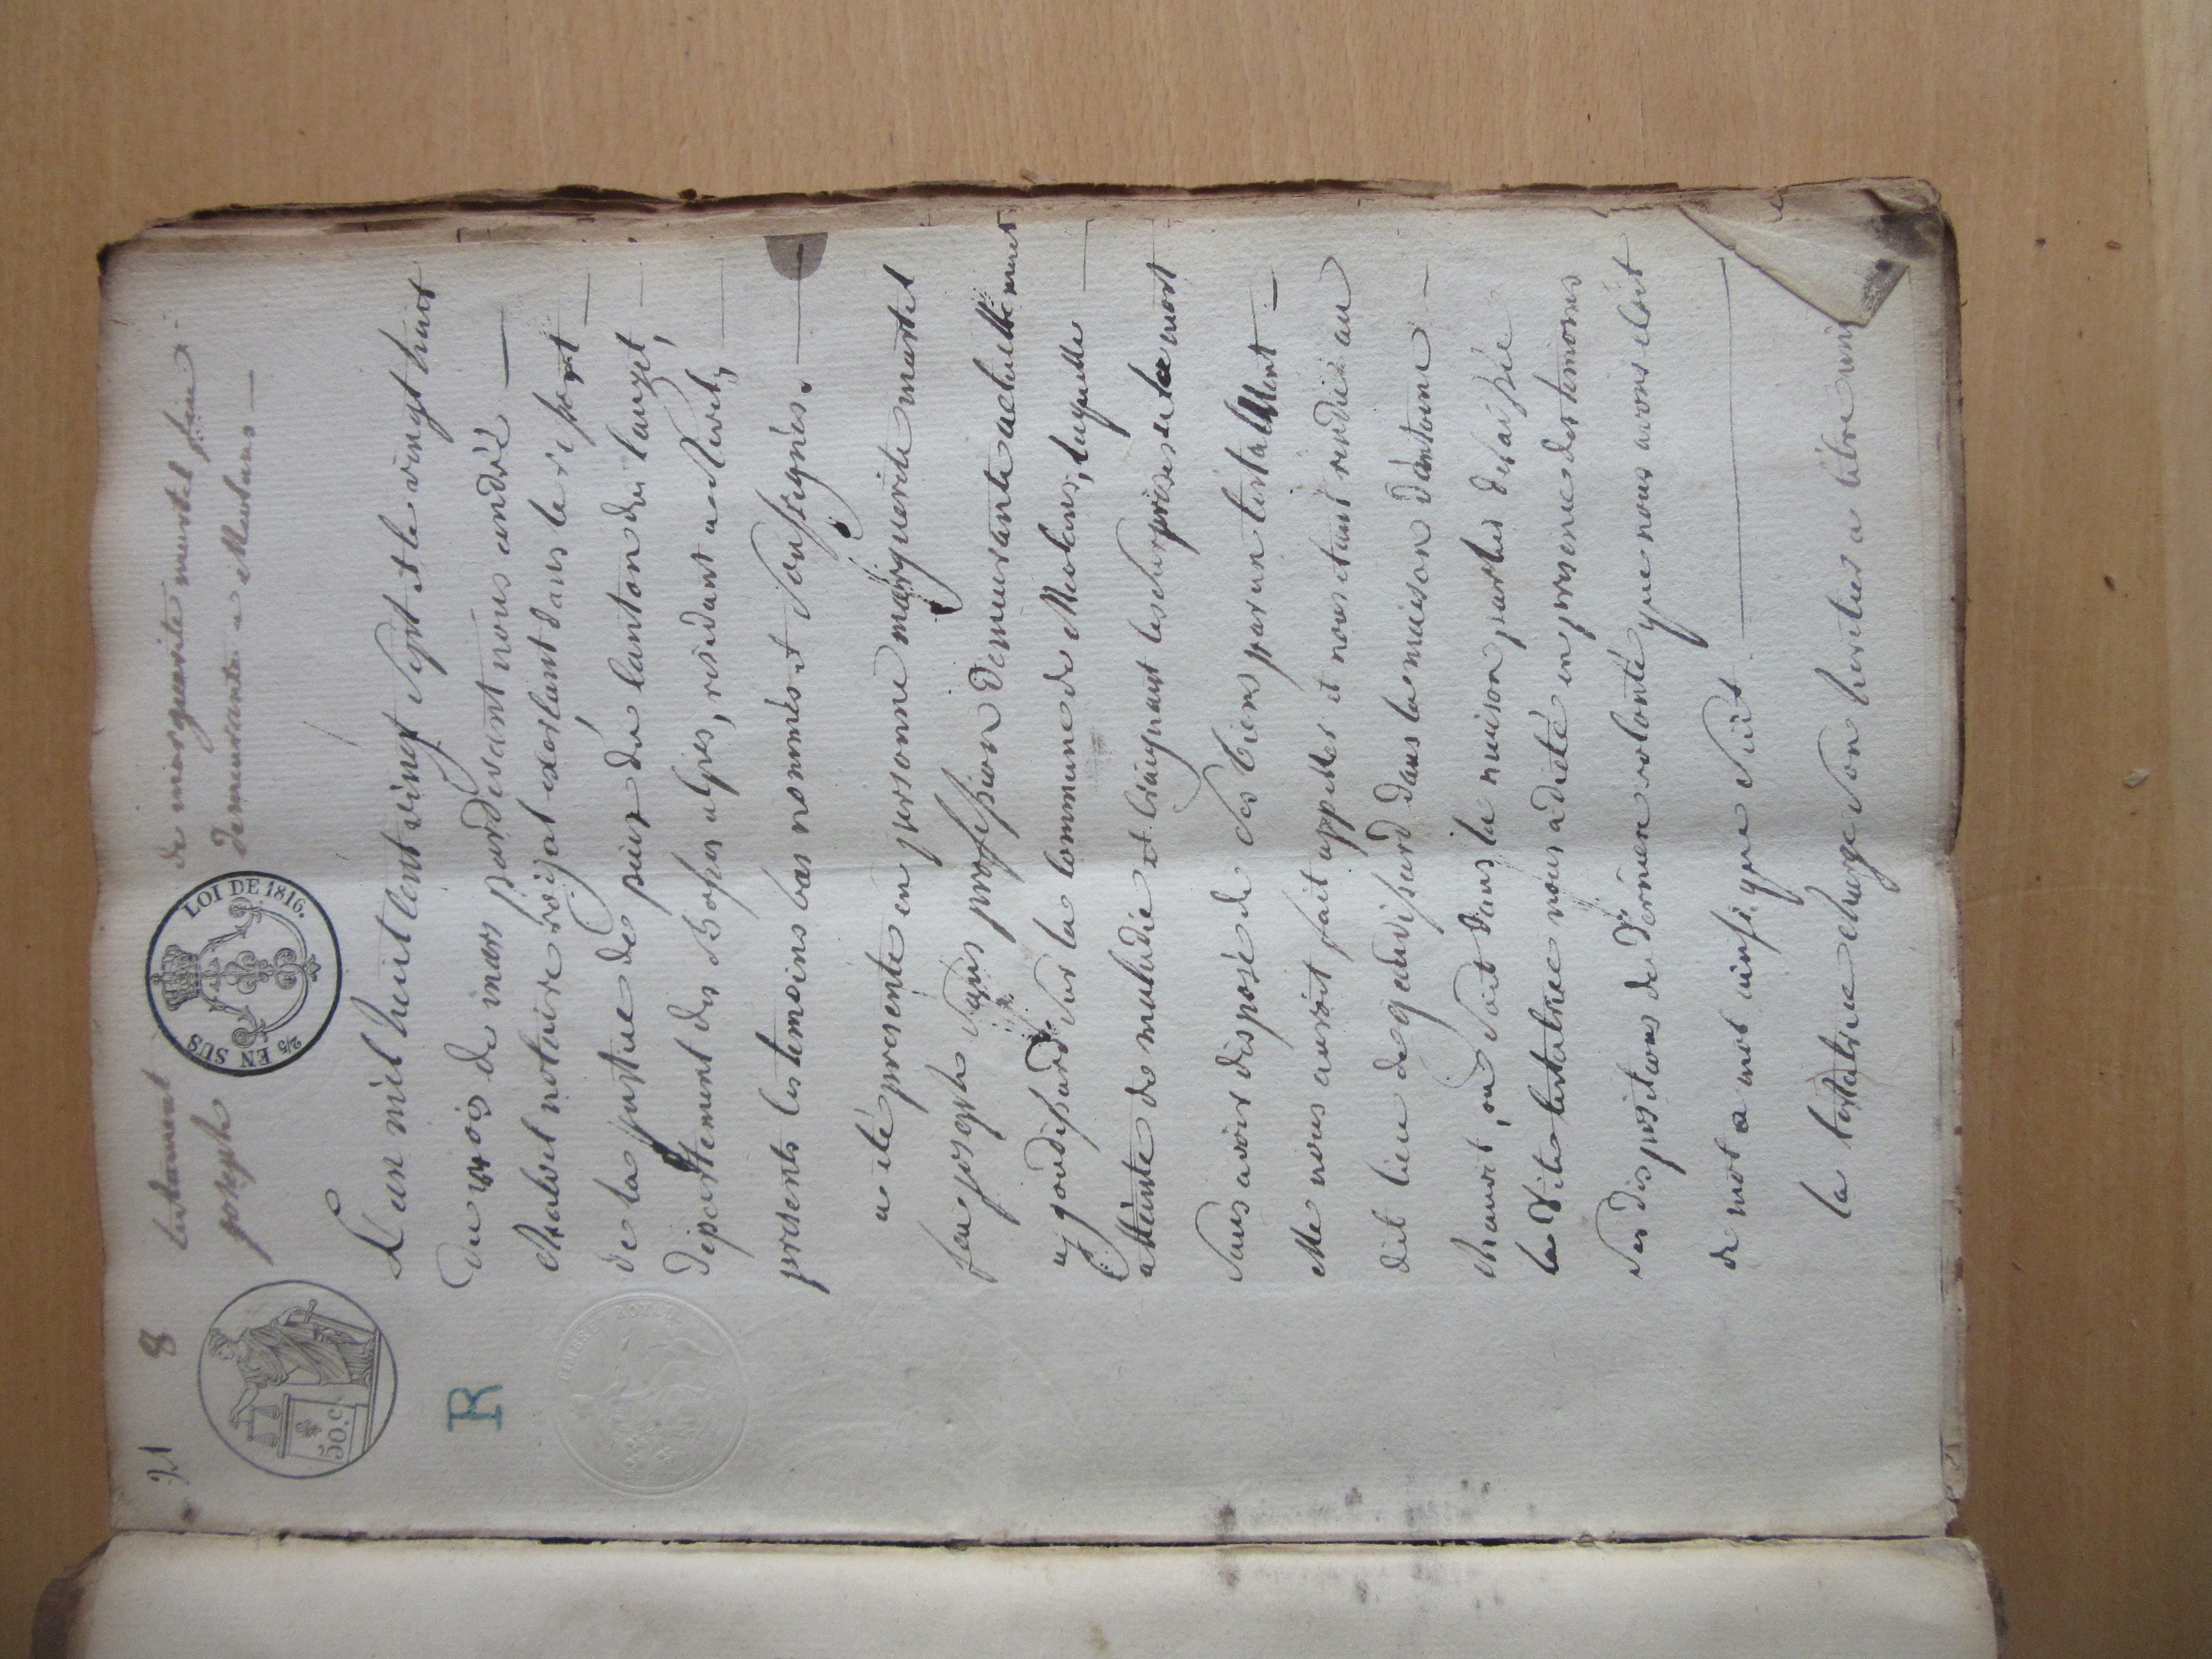 21 8 testament de marguerite martel feu
joseph demeurante a Meolans
LOI DE 1816.
2/5 EN SUS
50. C
R
TIMBRE ROYAL
L'an mil huit cent vingt sept et le vingt huit
du mois de mars pardevant nous andré
chabret notaire roïjal exerçant dans le ressort
de la justice de paix du canton du lauzet,
departtement des Basses alpes, residant a
presents les temoins bas nommés et soussignés.
a été presente en personne marguerite martel
feu joseph sans profession demeurante actuellement
a gaudissard sur la commune de Meolans, laquelle
atteinte de maladie et craignant les surprises de la mort
sans avoir disposé de ses biens par un testament
elle nous auroit fait appeller et nous etant rendu au
dit lieu de gaudissard dans la maison d'antoine
chauvet, ou soit dans la maison parties de
la dite testatrice nous a dicté en presence des temoins
ses dispositions de derniere volonté que nous avons écrit
de mot a mot ainsi que suit
la testatrice charge son heritier a